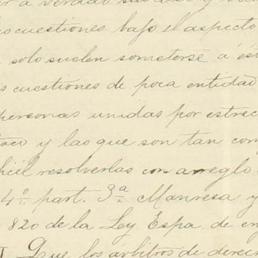 cuestiones bajo el aspecto
solo suelen someterse a
cuestiones de poca entidad
personas unidas por estrec
y las que son tan com
cil resolverlas con arreglo
4º. part. 3ª Manresa y
820 de la Ley Espa. de en
Que los árbitros de derec